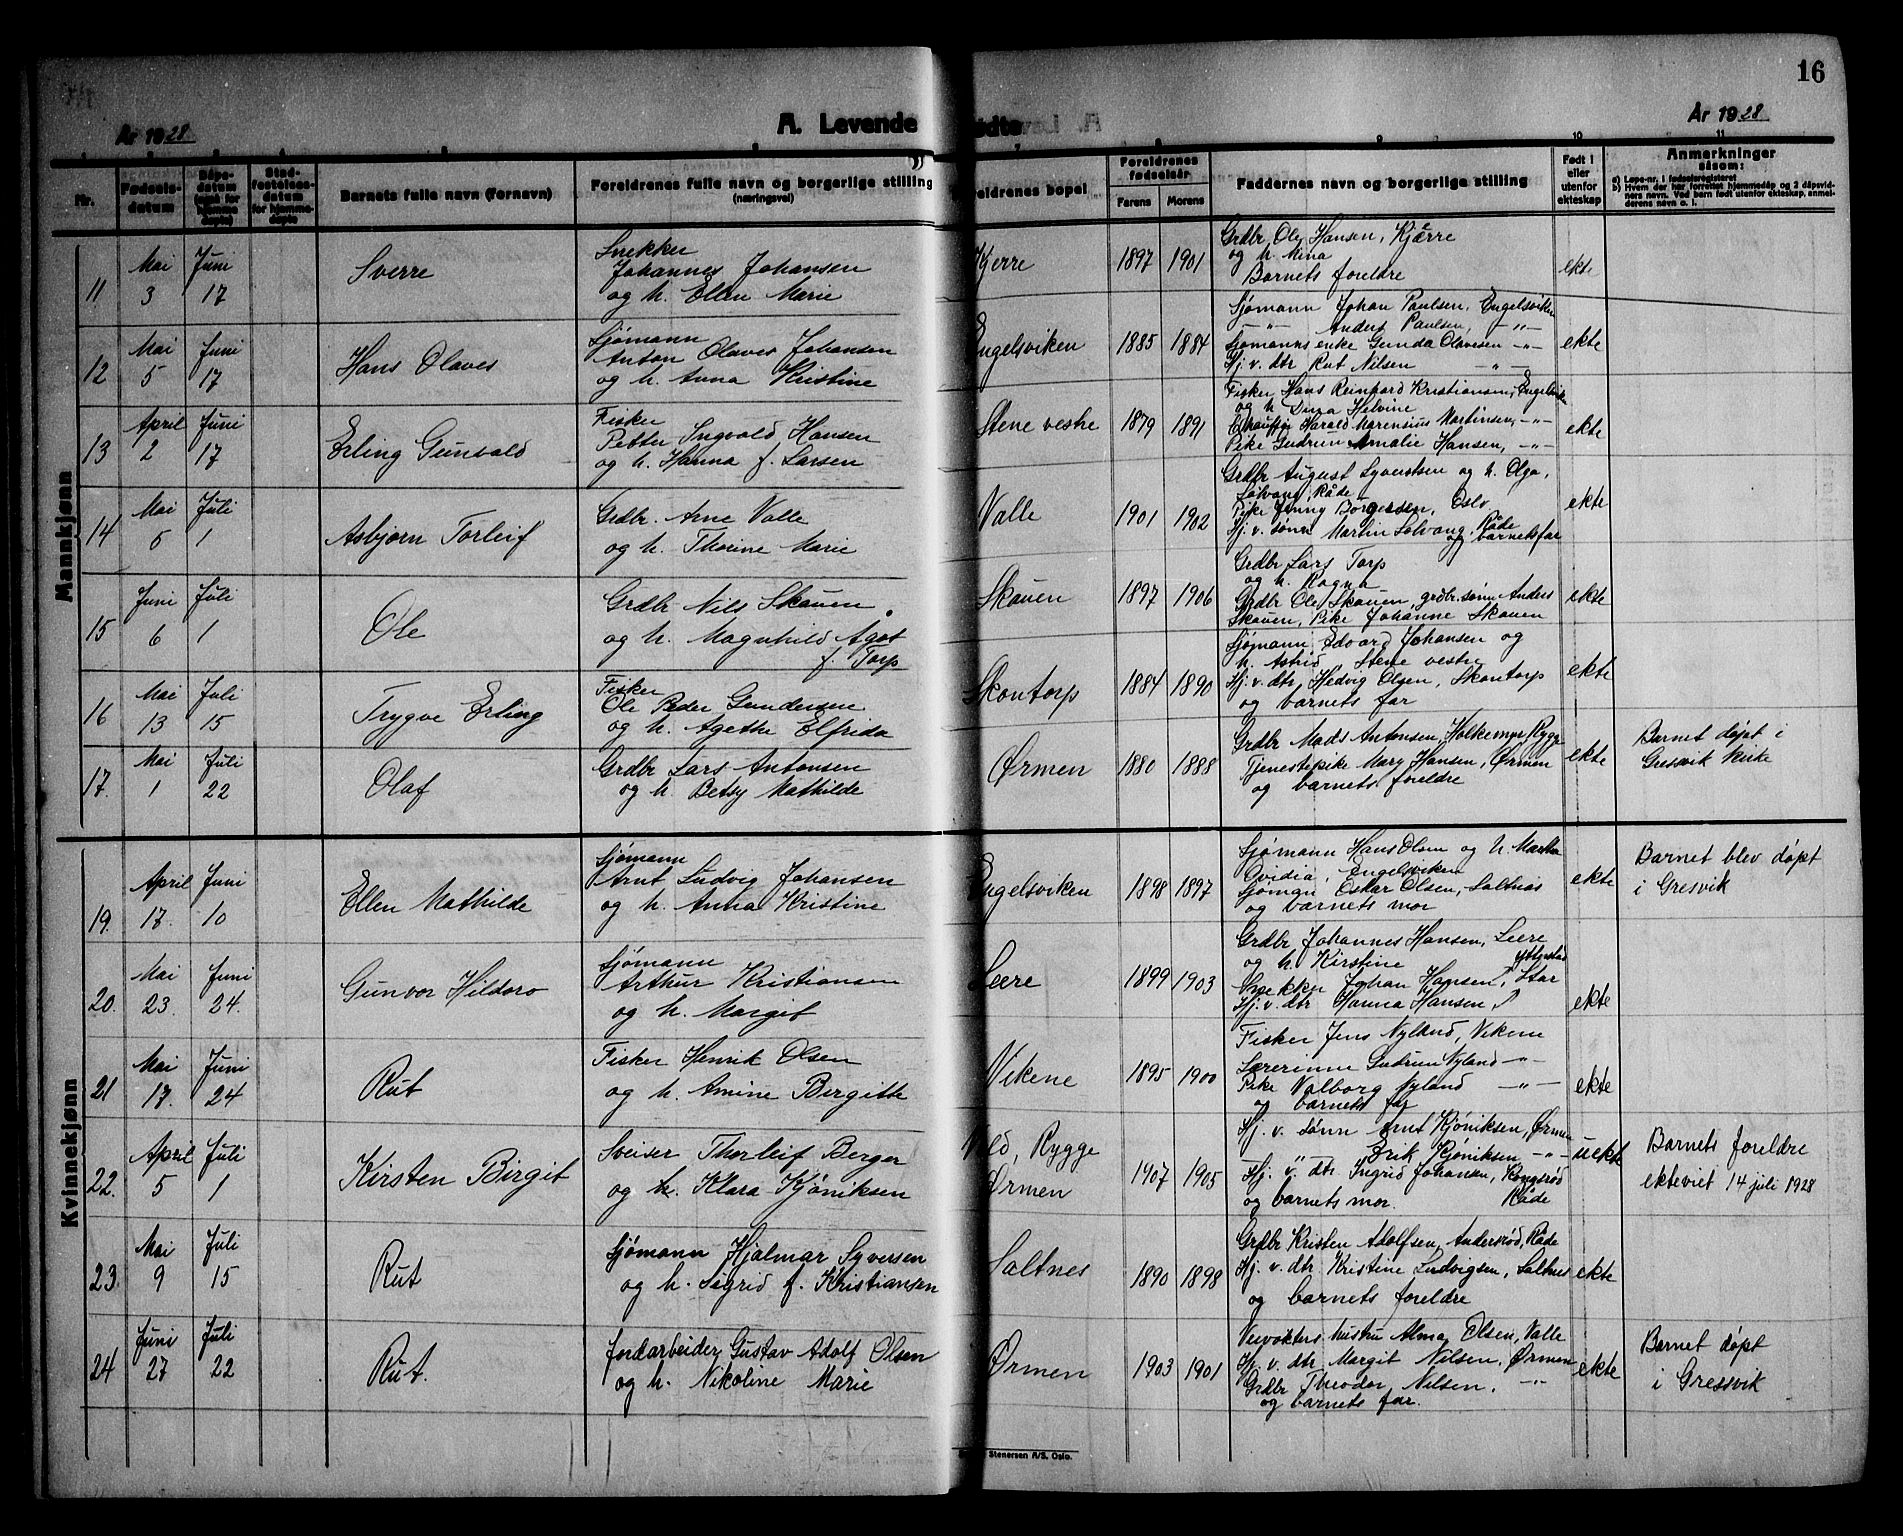 16
År 1928
A. Levende fødte
År 1928
Nr.
Fødselsdatum
Dåpsdatum
Stadfestelsesdatum for hjemmedåp
Barnets fulle navn (fornavn)
Foreldrenes fulle navn og borgerlige stilling
(næringsvei)
Foreldrenes bopel
Foreldrenes fødselsår
Farens
Morens
Faddernes navn og borgerlige stilling
Født i eller utenfor ekteskap
Anmerkninger
såsom:
a) Løpe-nr. i fødselsregisteret
b) Hvem der har forrettet hjemmedåp og 2 dåpsvidners navn. Ved barn født utenfor ekteskap, anmelderens navn o. l.
Mannkjønn
11 Mai 3 Juni 17 Sverre
Snekker
Johannes Johansen
og h. Ellen Marie
Kjerre 1897 1901
Grdbr. Ole Hansen, Kjærre
og h. Mina
Barnets foreldre
ekte
12 Mai 5 Juni 17 Hans Olaves
Sjømann
Anton Olaves Johansen
og h. Anna Kristine
Engelsviken 1885 1884
Sjømann Johan Paulsen, Engelsviken
—"— Anders Paulsen, —"—
Sjømanns enke Gunda Olavesen —"—
Hj. v. dtr Rut Nilsen —"—
ekte
13 April 2 Juni 17 Erling Gunvald
Fisker
Petter Ingvald Hansen
og h. Hanna f. Larsen
Stene vestre 1879 1891
Fisker Hans Reinhard Kristiansen, Engelsviken
og h. Dina Helvine
Chauffør Harald Marensius Martinsen, —"—
Pike Gudrun Amalie Hansen, —"—
ekte
14 Mai 6 Juli 1 Asbjørn Torleif
Grdbr. Arne Valle
og h. Thorine Marie
Valle 1901 1902
Grdbr August Syvertsen og h. Olga,
Solvang, Råde
Pike Jenny Borgersen, Oslo
Hj. v. sønn Martin Solvang, Råde
og barnets far
ekte
15 Juni 6 Juli 1 Ole
Grdbr. Nils Skauen
og h. Magnhild Agot
f. Torp
Skauen 1897 1906
Grdbr Lars Torp
og h. Ragna
Grdbr Ole Skauen, grdbr. sønn Anders
Skauen, Pike Johanne Skauen
ekte
16 Mai 13 Juli 15 Trygve Erling
Fisker
Ole Peder Gundersen
og h. Agethe Elfrida
Skontorp 1884 1890
Sjømann Edvard Johansen og
h. Astrid Stene vestre
Hj. v. dtr Hedvig Olsen, Skontorp
og barnets far
ekte
17. Mai 1 Juli 22 Olaf
Grdbr Lars Antonsen
og h. Betsy Mathilde
Ørmen 1880 1888
Grdbr Mads Antonsen, Rygge
Tjenestepike Mary Hansen, Ørmen
og barnets foreldre
ekte
Barnet døpt i
Gresvik kirke
Kvinnekjønn
19. April 17. Juni 10 Ellen Mathilde
Sjømann
Arnt Ludvig Johansen
og h. Anna Kristine
Engelsviken 1898 1897
Sjømann Hans Olsen og h. Martha
Ovidia, Engelsviken
Sjømann Oskar Olsen, Saltnes
og barnets mor
ekte
Barnet blev døpt
i Gresvik
20. Mai 23. Juni 24. Gunvor Hildoro
Sjømann
Arthur Kristiansen
og h. Margit
Leere 1899 1903
Grdbr Johannes Hansen, Leere
og h. Kirstine
Snekker Johan Hansen,
Hj. v. dtr Hanna Hansen,
ekte
21 Mai 17. Juni 24 Rut
Fisker Henrik Olsen
og h. Amine Birgitte
Vikene 1895 1900
Fisker Jens Nyland, Vikene
Lærerinne Gudrun Nyland —"—
Pike Valborg Nyland —"—
og barnets far
ekte
22. April 5 Juli 1 Kirsten Birgit
Sveiser Thorleif Berger
og h. Klara Kjøniksen
Vold, Rygge
Ørmen 1907 1905
Hj. v. sønn Arnt Kjøniksen, Ørmen
—"— Erik Kjøniksen —"—
Hj. v. dtr Ingrid Johansen, Kongsrød
og barnets mor. Råde
uekte
Barnets foreldre
ekteviet 14 juli 1928
23. Mai 9 Juli 15 Rut
Sjømann Hjalmar Syversen
og h. Sigrid f. Kristiansen
Saltnes 1890 1898
Grdbr Kristen Adolfsen, Andersrød, Råde
Hj. v. dtr Kristine Ludvigsen, Saltnes
og barnets foreldre
ekte
24 Juni 27 Juli 22 Rut.
Jordarbeider Gustav Adolf Olsen
og h. Nikoline Marie
Ørmen 1903 1901
Veivokters hustru Alma Olsen, Valle
Hj. v. dtr Margit Nilsen, Ørmen
Grdbr Theodor Nilsen, —"—
og barnets far.
ekte
Barnet døpt
i Gressvik
Stenersen A/S. Oslo.